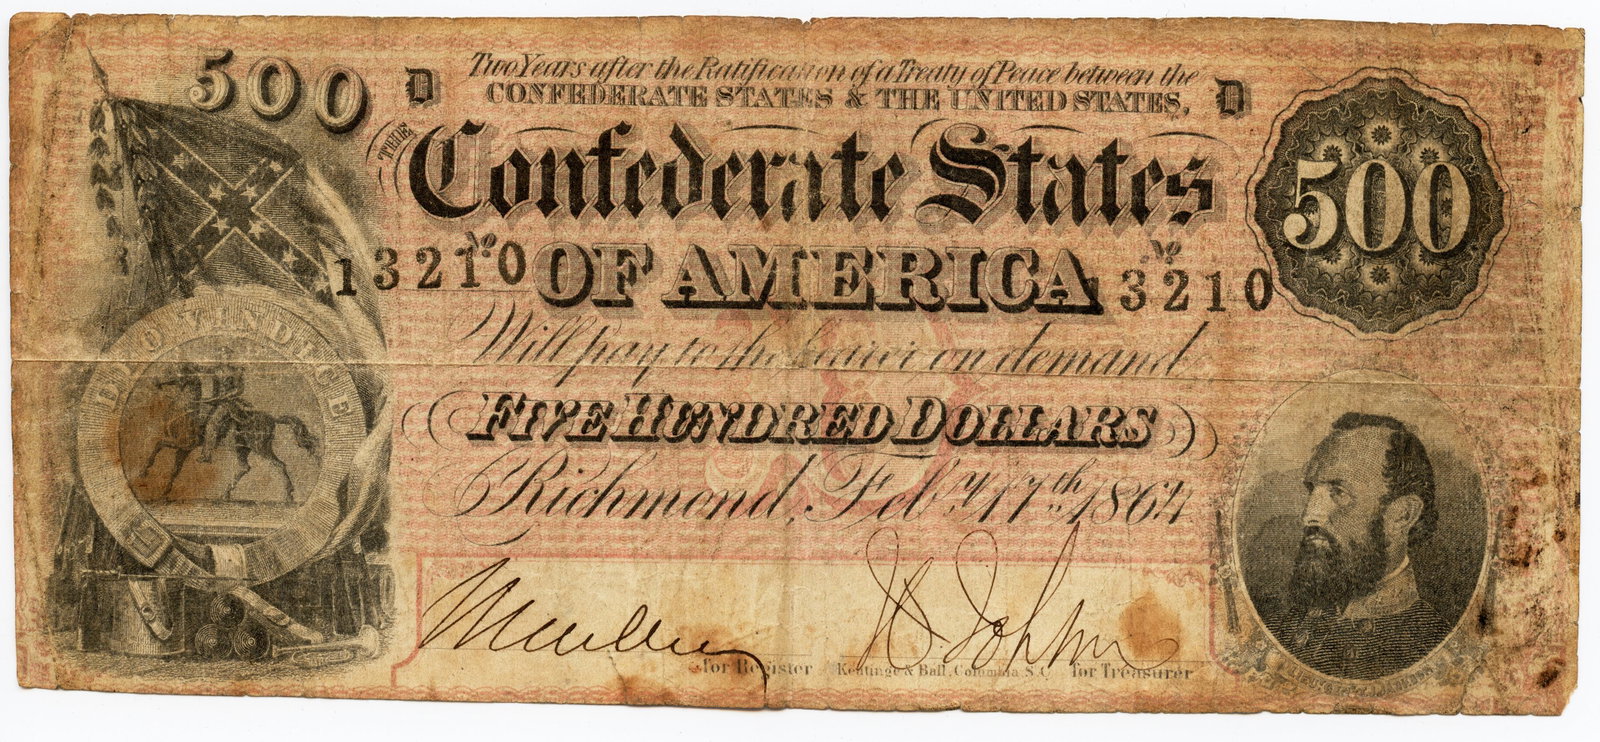 500 D Two Years after the Ratification of a Treaty of Peace between the D
CONFEDERATE STATES & THE UNITED STATES,
500
THE Confederate States
No 13210 OF AMERICA No 13210
Will pay to the bearer on demand
DEO VINDICE
FIVE HUNDRED DOLLARS
Richmond, Feby. 17th. 1864
for Register Keatinge & Ball, Columbia, S.C. for Treasurer